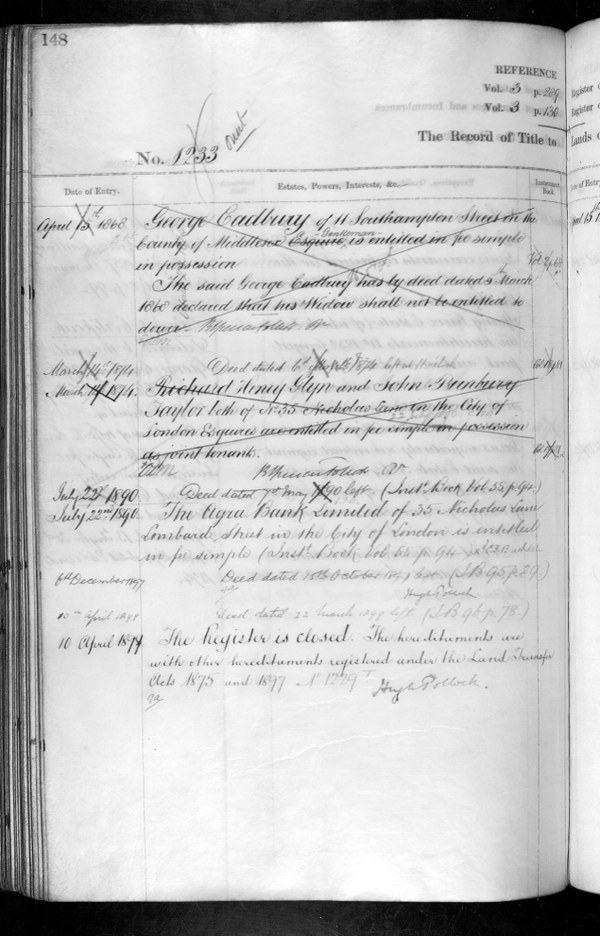 148
REFERENCE
Vol. 5 p. 289
Vol. 3 p. 130
The Record of Title to
No. 1233
Date of Entry.
Estates, Powers, Interests, &c.
Instrument Book.
April 15th 1868
George Cadbury of 11 Southampton Street in the
County of Middlesex Esquire Gentleman is entitled in fee simple
in possession
The said George Cadbury has by deed dated March
1868 declared that his Widow shall not be entitled to
dower.
March 14th 1874
Deed dated 6th 1874 left
March 14 1874.
Richard Henry Glyn and John Bunbury
Taylor both of No 35 Nicholas Lane in the City of
London Esquires are entitled in fee simple in possession
as joint tenants.
July 22 1890
Deed dated 7th May 1890 left (Inst. Book Vol 55 p 94.)
July 22nd 1890.
The Agra Bank Limited of 35 Nicholas Lane
Lombard Street in the City of London is entitled
in fee simple (Inst. Book Vol 55 p 94
6th December 1897
Deed dated 18th October 1897 left (I.B 95 p 29.)
Hugh Pollock
April 1898
Deed dated 22 March 1898 left (I.B 96 p. 78.)
10 April 1899
The Register is closed. The hereditaments are
with other hereditaments registered under the Land Transfer
Acts 1875 and 1897 No 1229
Hugh Pollock.
Register
Register
Lands
of Entry
April 15